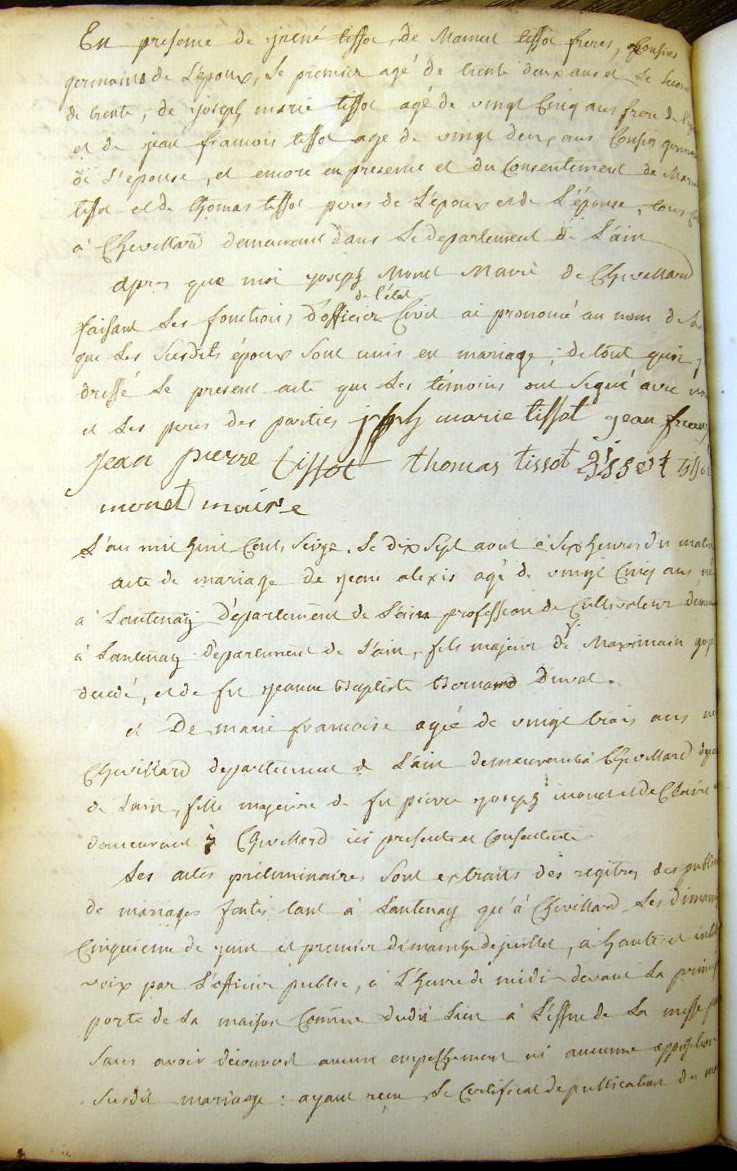 En presence de jrené tissot, de Mamert tissot freres, cousins
germains de L'époux, Le premier agé de trente deux ans et Le
de trente, de joseph marie tissot agé de vingt Cinq ans frere de
et de jean francois tissot agé de vingt deux ans Cousin
de L'épouse, et encore en presence et du Consentement de
tissot et de thomas tissot peres de L'époux et de L'épouse, tous
à Chevillard demeurant dans Le departement de L'ain
apres que moi joseph Monet Maire de Chevillard
de l'état
faisant Les fonctions d'officier Civil ai prononcé au nom de La
que Les Susdits époux Sont unis en mariage; de tout quoi j
dressé Le present acte que Les témoins ont Signé avec
et Les peres des parties joseph marie tissot jean
Jean pierre tissot thomas tissot
monet maire
L'an mil huit Cent, Seize. Le dix Sept aout à Sept heures du matin
acte de mariage de jean alexis agé de vingt Cinq ans, né
à Lantenay département de L'ain profession de Cultivateur
à Lantenay departement de L'ain, fils majeur de Maximain
decedé, et de fu jeanne Baptiste Bernard Duval.
et De marie francoise agée de vingt trois ans
Chevillard departement de L'ain demeurante à Chevillard
de L'ain, fille majeure de fu pierre joseph monet et de Claire
demeurant à Chevillard ici presente et Consentente
Les actes préliminaires Sont extraits des registres des
de mariages faites tant à Lantenay qu'à Chevillard Les
Cinquieme de juin et premier dimanche de juillet, à haute et
voix par L'officier public, à L'heure de midi devant La
porte de La maison Comune dudit Lieu à L'issue de La messe
Sans avoir découvert aucun empechement ni aucunne opposition
Susdit mariage: ayant reçu Le Certificat de publication du